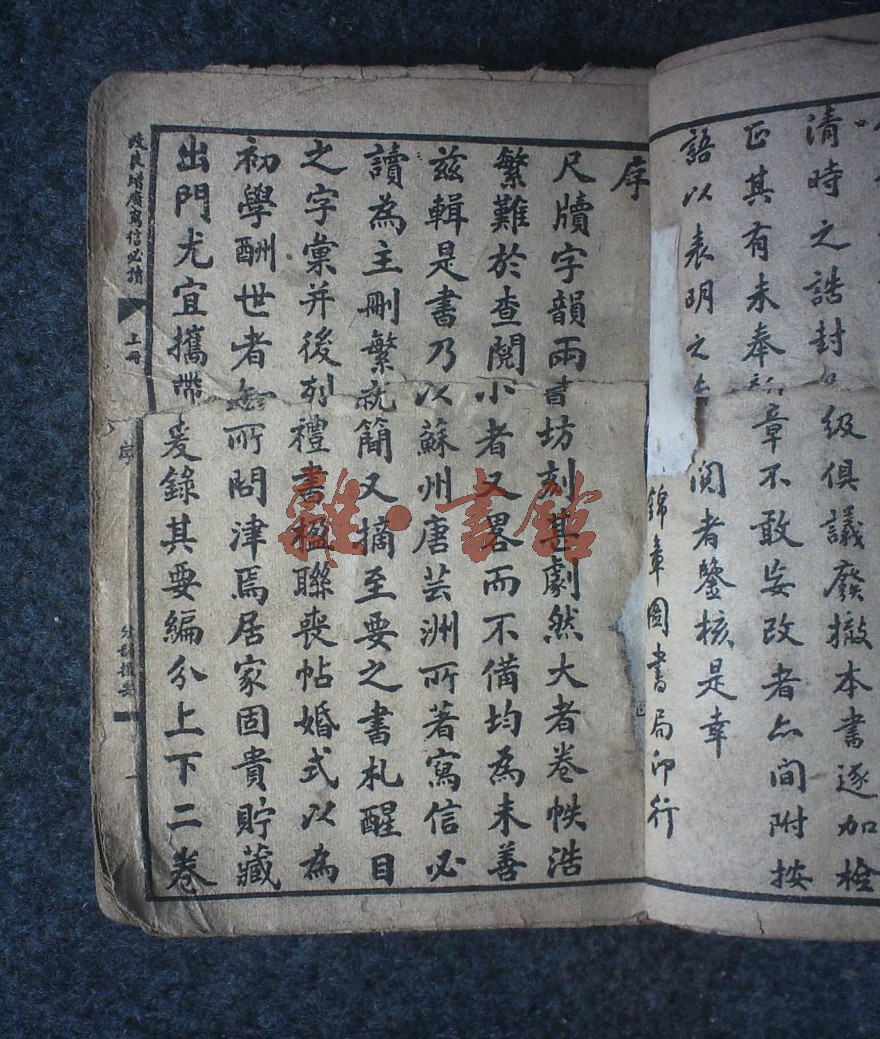 清時之誥封 級俱議廢撤本書逐加檢
正其有未奉 章不敢妄改者亦間附按
語以表明之 閱者鑒核是幸
錦章圖書局印行
序
尺牘字韻兩書坊刻甚劇然大者卷帙浩
繁難於查閱小者又畧而不備均為未善
茲輯是書乃以蘇州唐芸洲所著寫信必
讀為主刪繁就簡又摘至要之書札醒目
之字彙并後列禮書楹聯喪帖婚式以為
初學酬世者 所問津焉居家固貴貯藏
出門尤宜攜帶爰錄其要編分上下二卷
改良增廣寫信必讀
上冊
序
分韻撮要
一
雜·書館